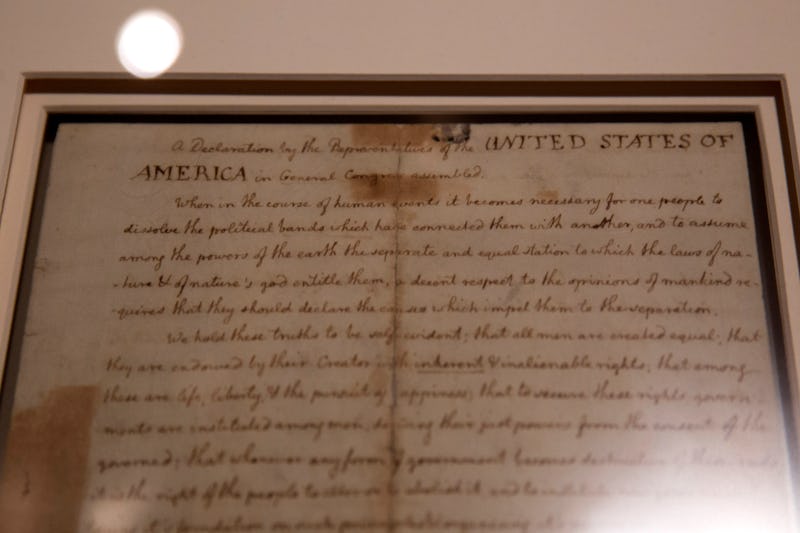 A Declaration by the Representatives of the UNITED STATES OF
AMERICA in General Congress assembled.
When in the course of human events it becomes necessary for one people to
dissolve the political bands which have connected them with another, and to assume
among the powers of the earth the separate and equal station to which the laws of na-
-ture & of nature's god entitle them, a decent respect to the opinions of mankind re-
-quires that they should declare the causes which impel them to the separation.
We hold these truths to be self evident; that all men are created equal; that
they are endowed by their Creator with inherent & inalienable rights; that among
these are life, liberty, & the pursuit of happiness; that to secure these rights govern-
ments are instituted among men, deriving their just powers from the consent of the
governed; that whenever any form of government becomes destructive of these ends
it is the right of the people to alter or to abolish it, and to institute
it's foundation on such